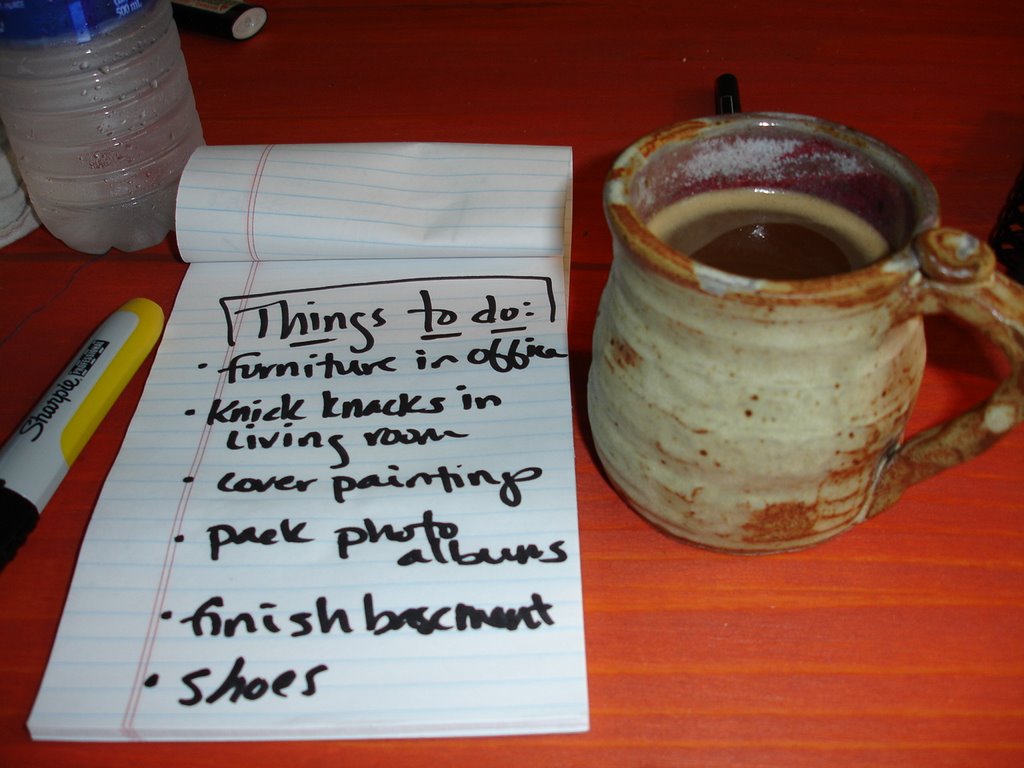 500 mL
Things to do:
• furniture in office
• Knick knacks in
living room
• cover paintings
• pack photo
albums
• finish basement
• shoes
Sharpie